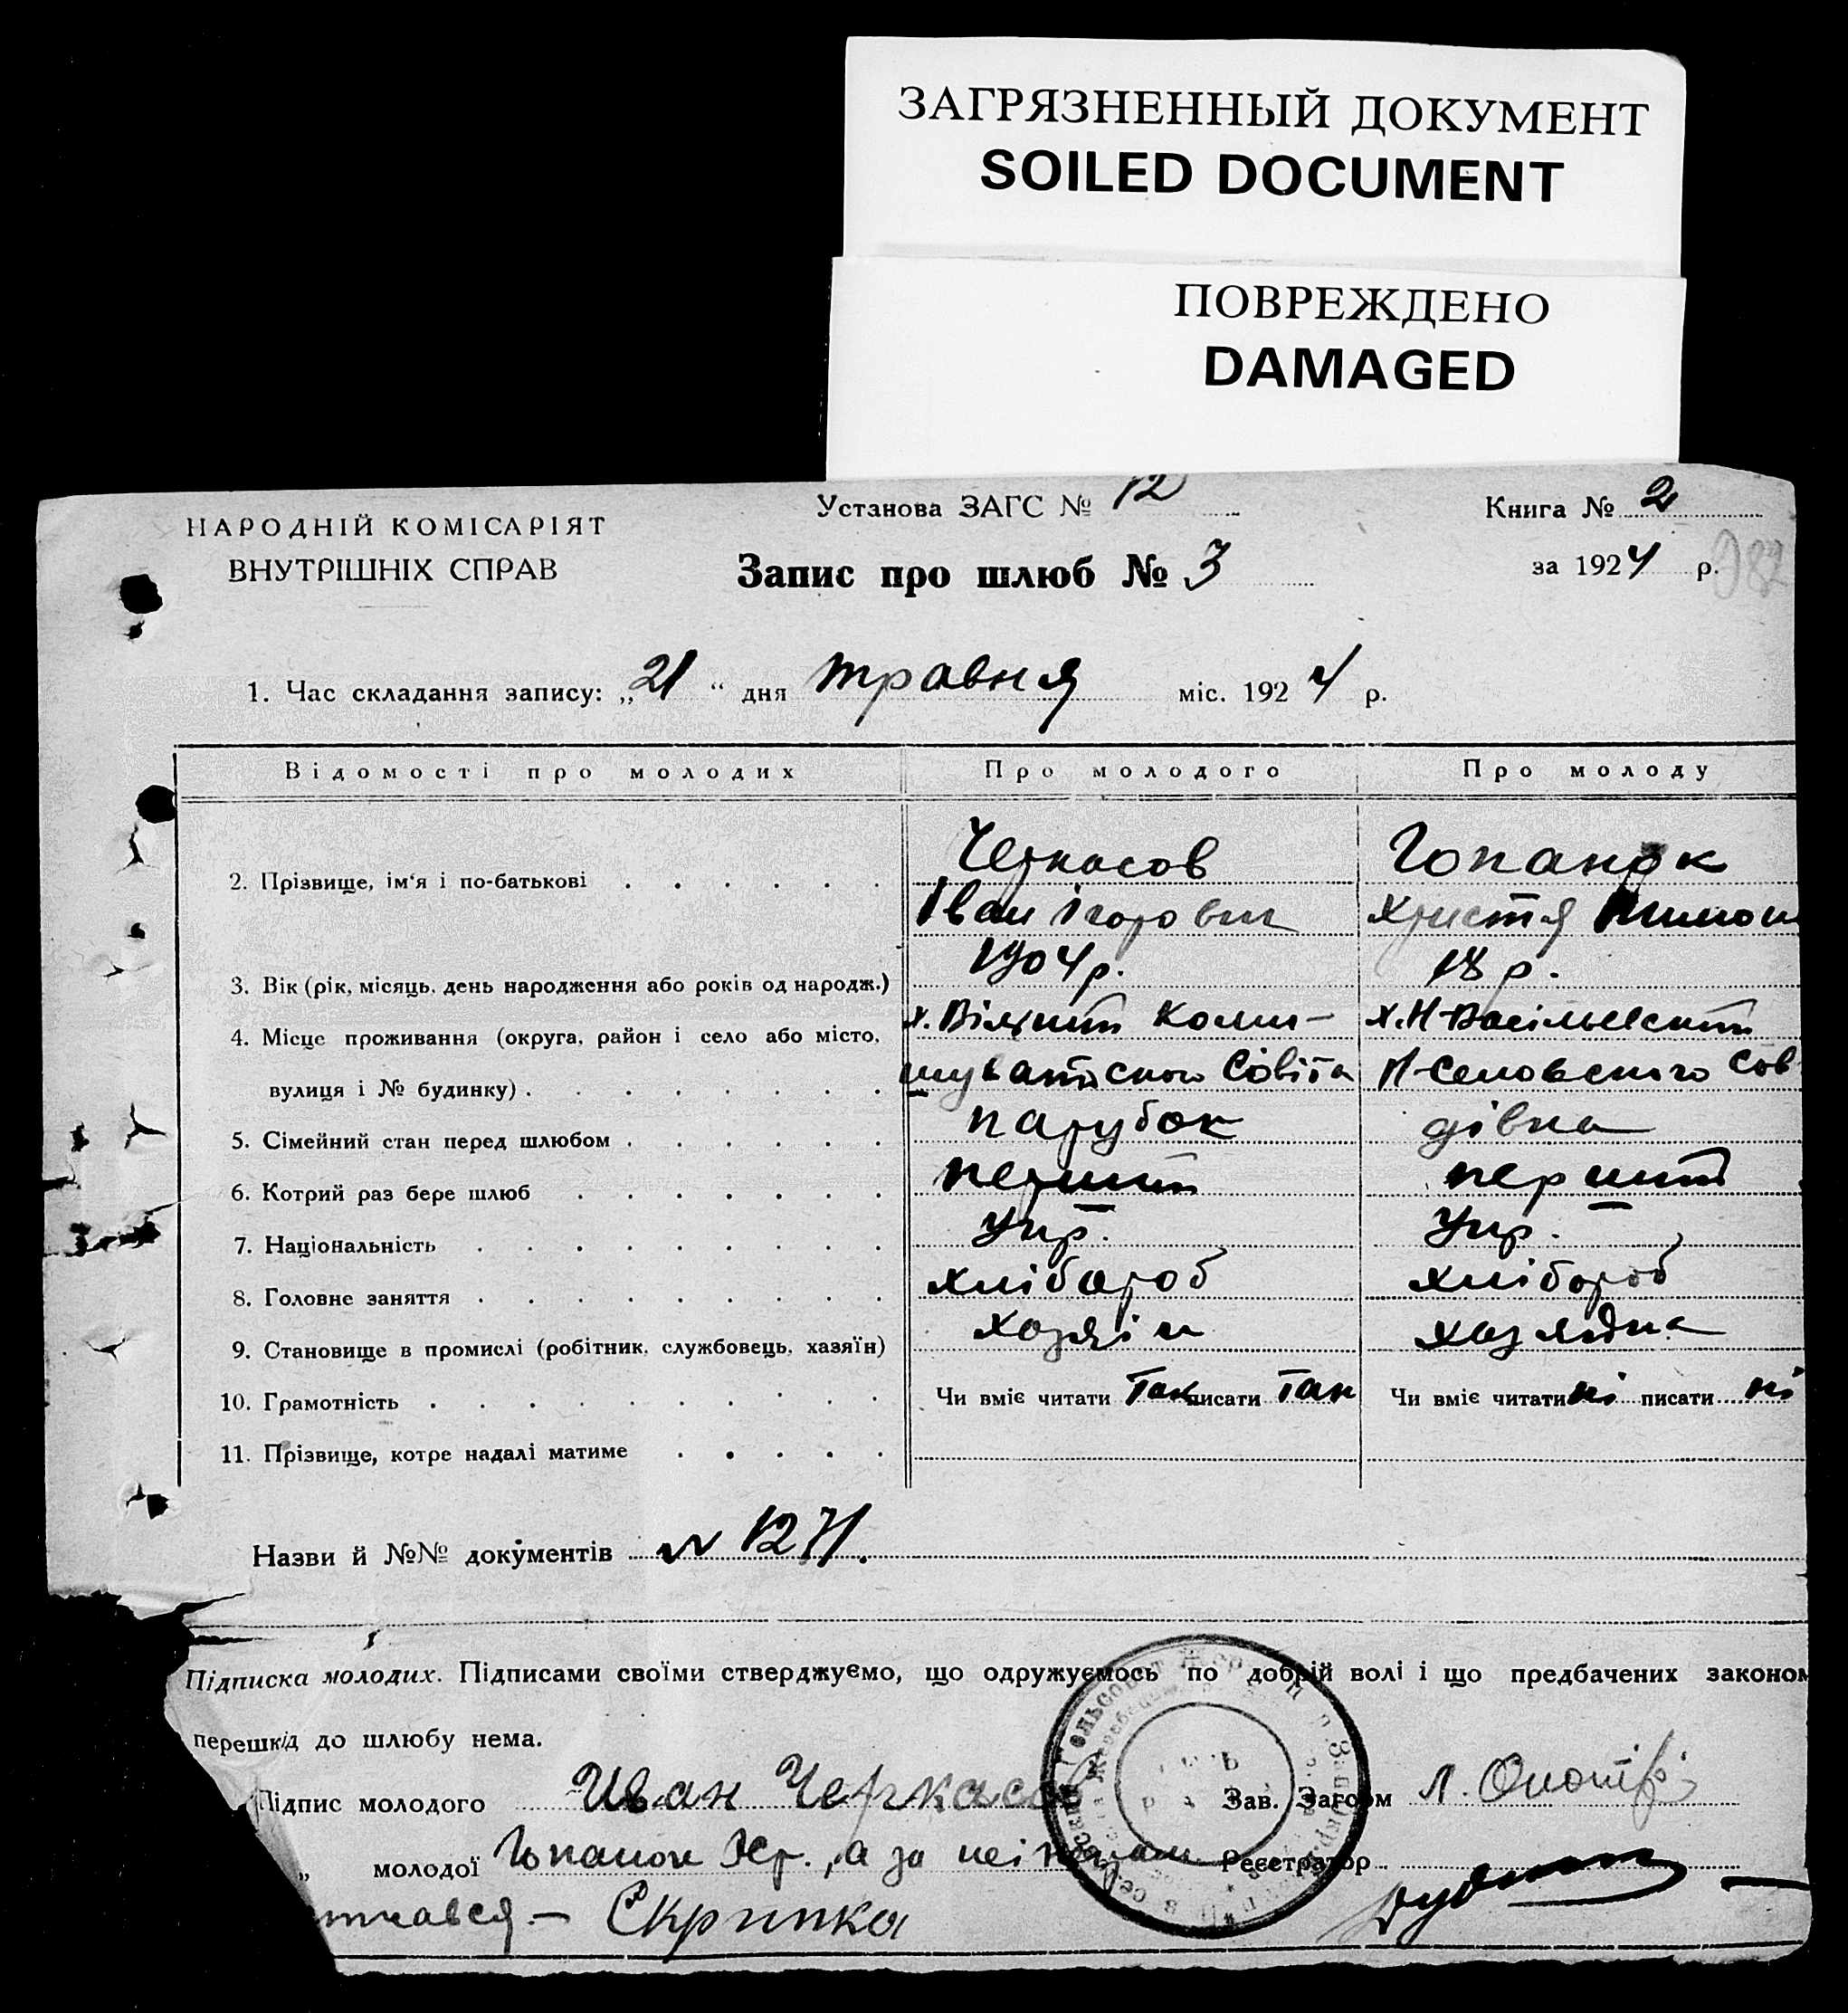 ЗАГРЯЗНЕННЫЙ ДОКУМЕНТ
SOILED DOCUMENT
ПОВРЕЖДЕНО
DAMAGED
НАРОДНІЙ КОМІСАРІЯТ
ВНУТРІШНІХ СПРАВ
Установа ЗАГС № 12
Запис про шлюб № 3
Книга № 2
за 1924 р.
1. Час складання запису: „21“ дня травня міс. 1924 р.
Відомості про молодих Про молодого Про молоду
2. Прізвище, ім'я і по-батькові Черкасов Гопанок
Іван Ігорович Христя
3. Вік (рік, місяць, день народження або років од народж.) 1904 р. 18 р.
4. Місце проживання (округа, район і село або місто, х. Вільний Коми- х. Н-Васільевский
вулиця і № будинку) шуватского Совіта Сов
5. Сімейний стан перед шлюбом парубок дівка
6. Котрий раз бере шлюб перший перший
7. Національність Укр. Укр.
8. Головне заняття хлібороб хлібороб
9. Становище в промислі (робітник, службовець, хазяїн) хозяін
10. Грамотність Чи вміє читати Так писати Так Чи вміє читати ні писати ні
11. Прізвище, котре надалі матиме
Назви й №№ документів № 1271.
Підписка молодих. Підписами своїми стверджуємо, що одружуємось по добрій волі і що предбачених законом
перешкід до шлюбу нема.
Підпис молодого Иван Черкасов Зав. Загсом Л.
„ молодої Гопанок Хр., а за неі Реєстратор
Скрипка